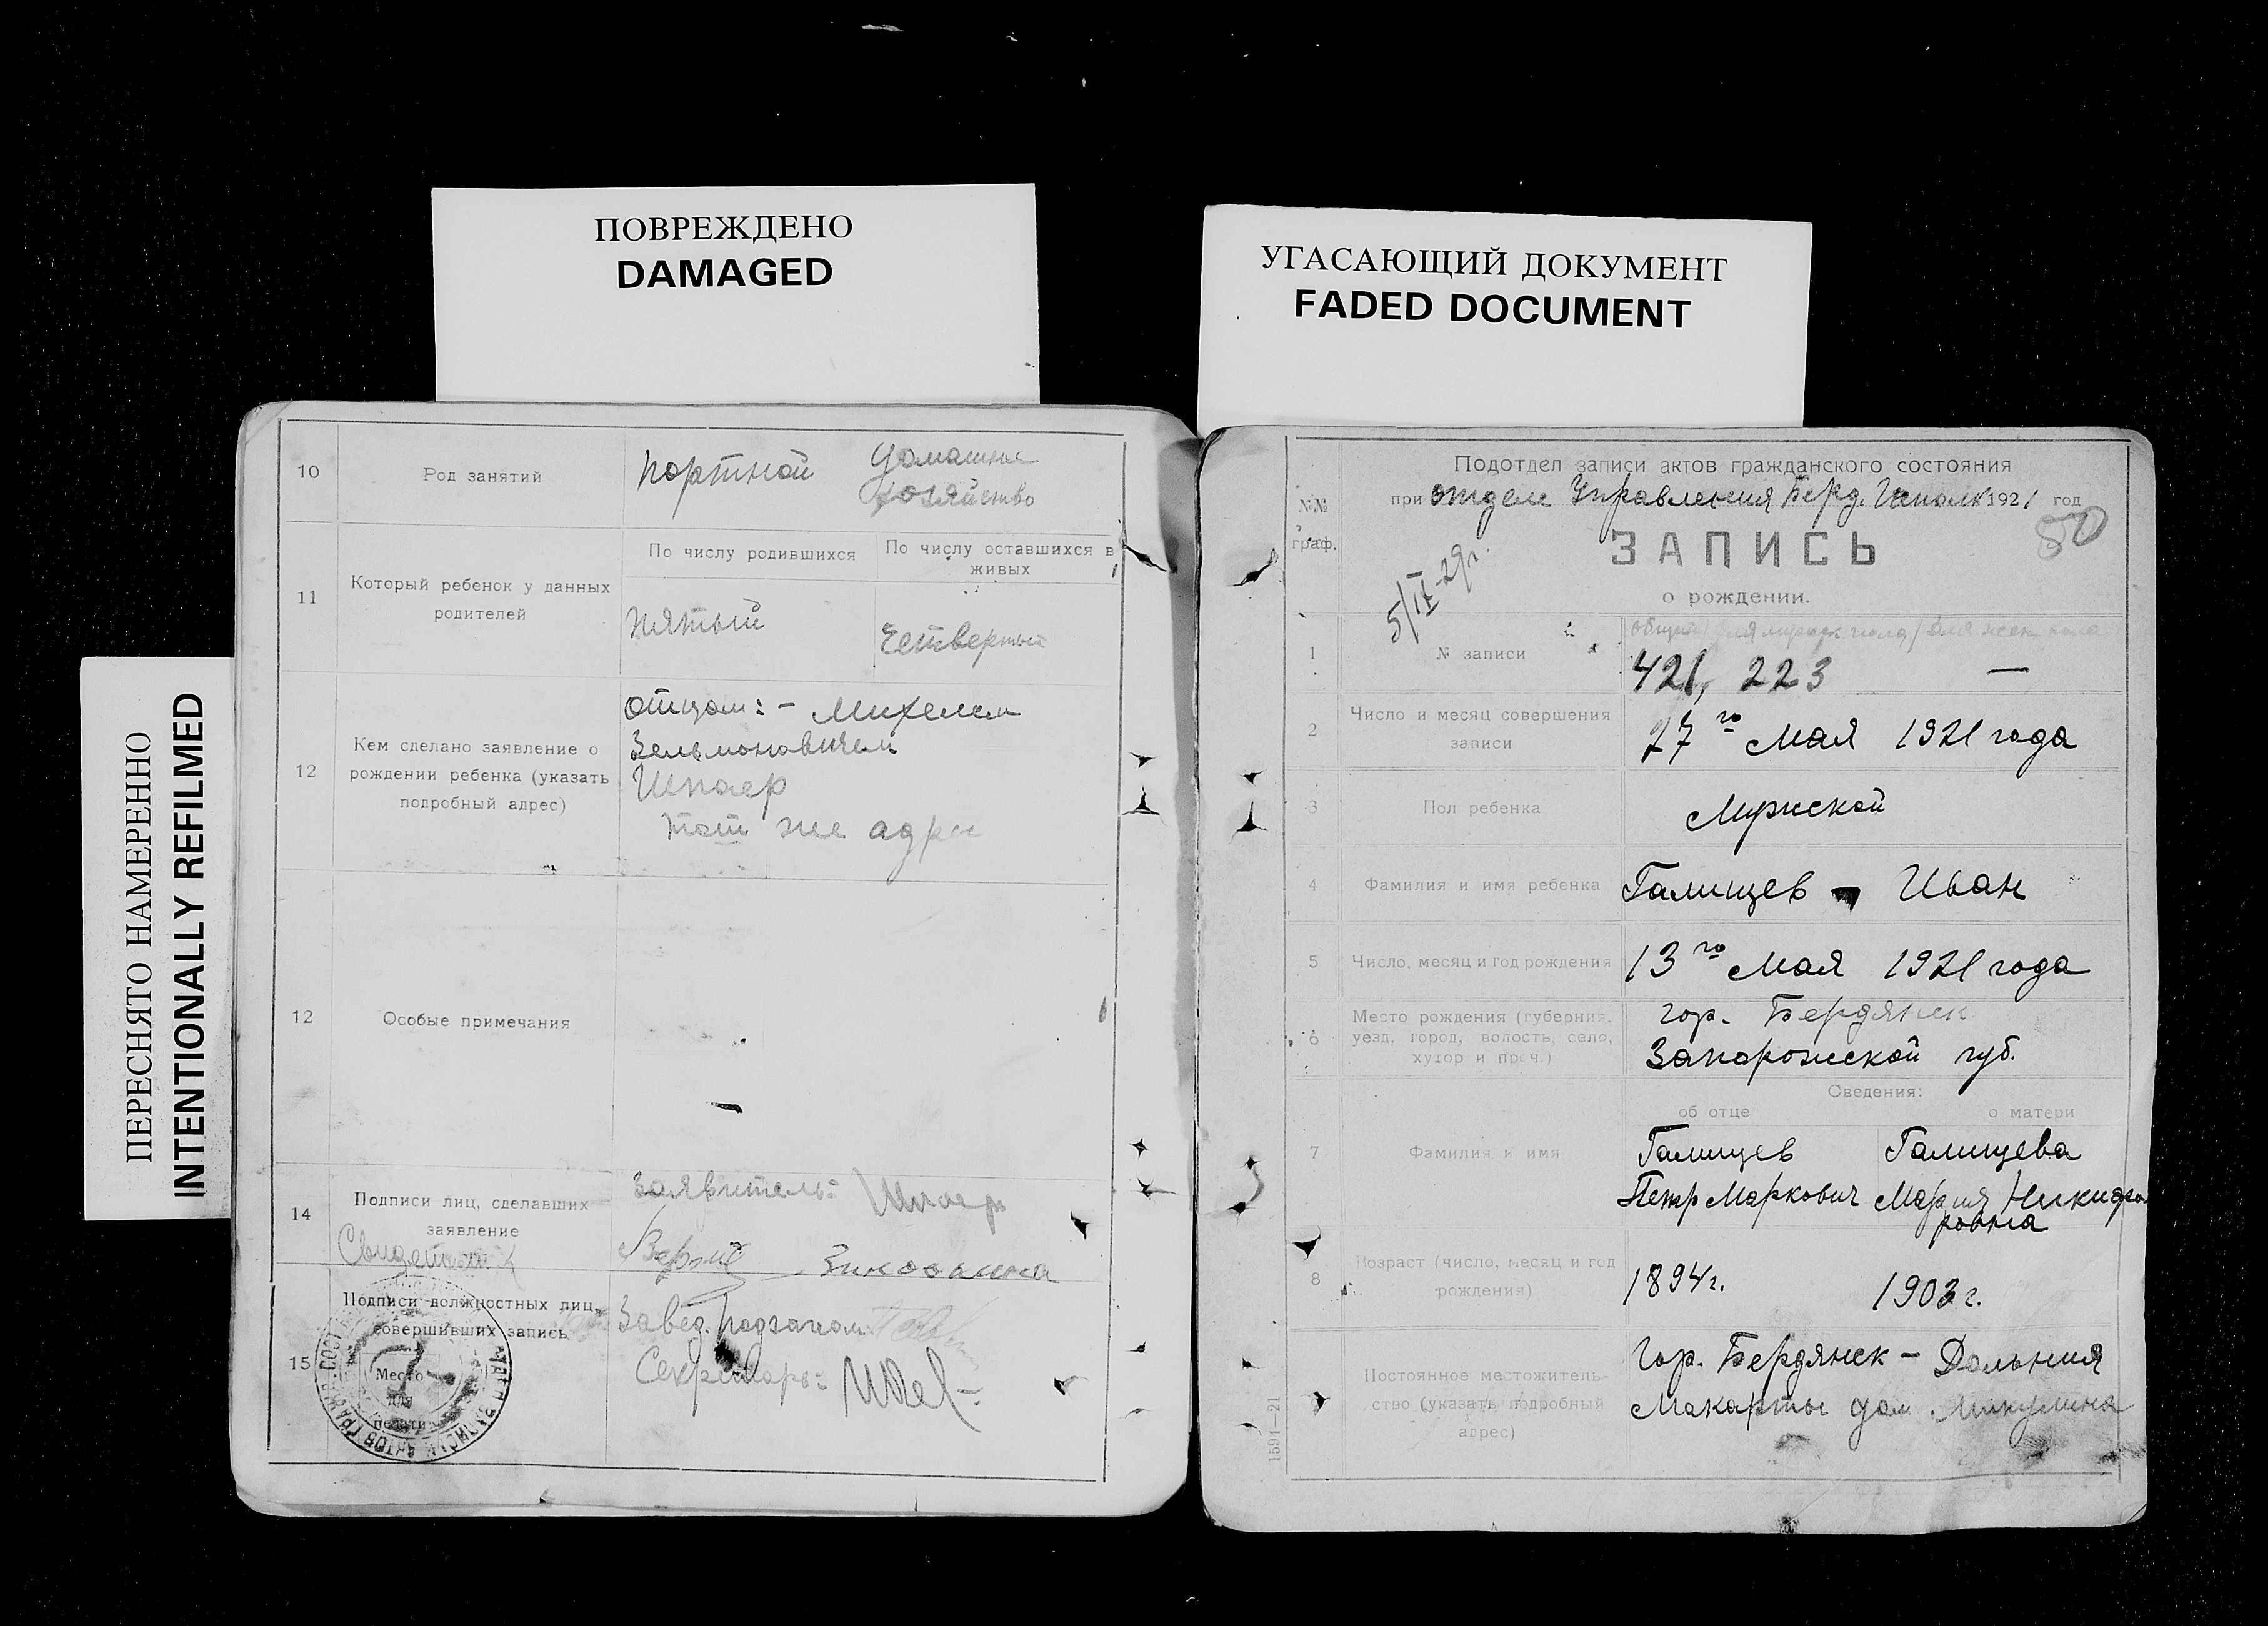 ПОВРЕЖДЕНО
DAMAGED
УГАСАЮЩИЙ ДОКУМЕНТ
FADED DOCUMENT
ПЕРЕСНЯТО НАМЕРЕННО
INTENTIONALLY REFILMED
10 Род занятий Портной Домашнее
хозяйство
11 Который ребенок у данных
родителей
По числу родившихся По числу оставшихся в
живых
Пятый Четвертый
12 Кем сделано заявление о
рождении ребенка (указать
подробный адрес)
Отцом: - Михелем
Зельмоновичем
Шпаер
Тот же адрес
12 Особые примечания
14 Подписи лиц, сделавших
заявление
Заявитель: Шпаер
15 Подписи должностных лиц,
совершивших запись
Место
для
печати
Завед. подзагсом
Секретарь:
Подотдел записи актов гражданского состояния
№№
граф.
при отделе Управления Берд. Исполк 1921 год
80
ЗАПИСЬ
о рождении.
5/IX-29г.
общий / для мужск. пола / для женск. пола
1 № записи 421, 223 —
2 Число и месяц совершения
записи
27го Мая 1921 года
3 Пол ребенка Мужской
4 Фамилия и имя ребенка Галищев Иван
5 Число, месяц и год рождения 13го Мая 1921 года
6 Место рождения (губерния,
уезд, город, волость, село,
хутор и проч.)
гор. Бердянск
Запорожской губ.
Сведения:
об отце о матери
7 Фамилия и имя Галищев Галищева
Петр Маркович Мария Никифо-
ровна
8 Возраст (число, месяц и год
рождения)
1894г. 1903г.
9 Постоянное местожитель-
ство (указать подробный
адрес)
Гор. Бердянск - Дальния
Макорты дом Микулина
1591—21